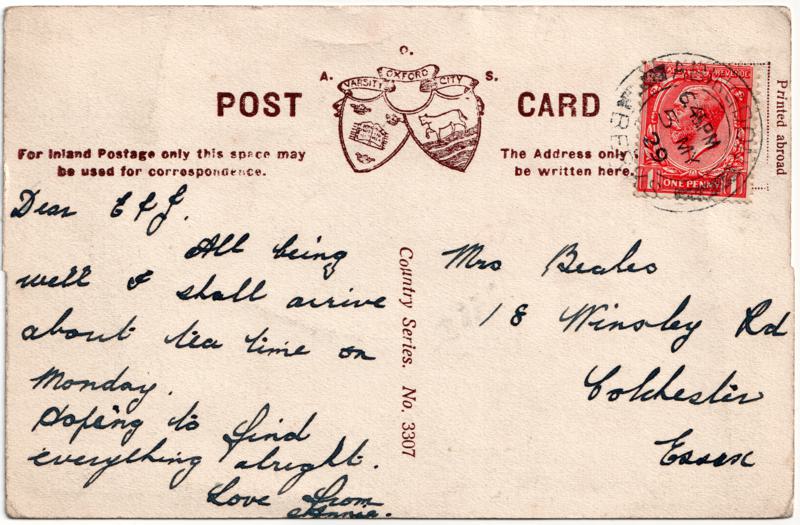 A. O. S.
VARSITY OXFORD CITY
POST CARD
Printed abroad
For Inland Postage only this space may
be used for correspondence.
The Address only
be written here.
6 PM
5 MY
29
REVENUE
ONE PENNY
Dear E & J.
All being
well I shall arrive
about tea time on
Monday.
Hoping to find
everything alright.
Love from
Annie.
Country Series. No. 3307
Mrs Beales
18 Winsley Rd
Colchester
Essex